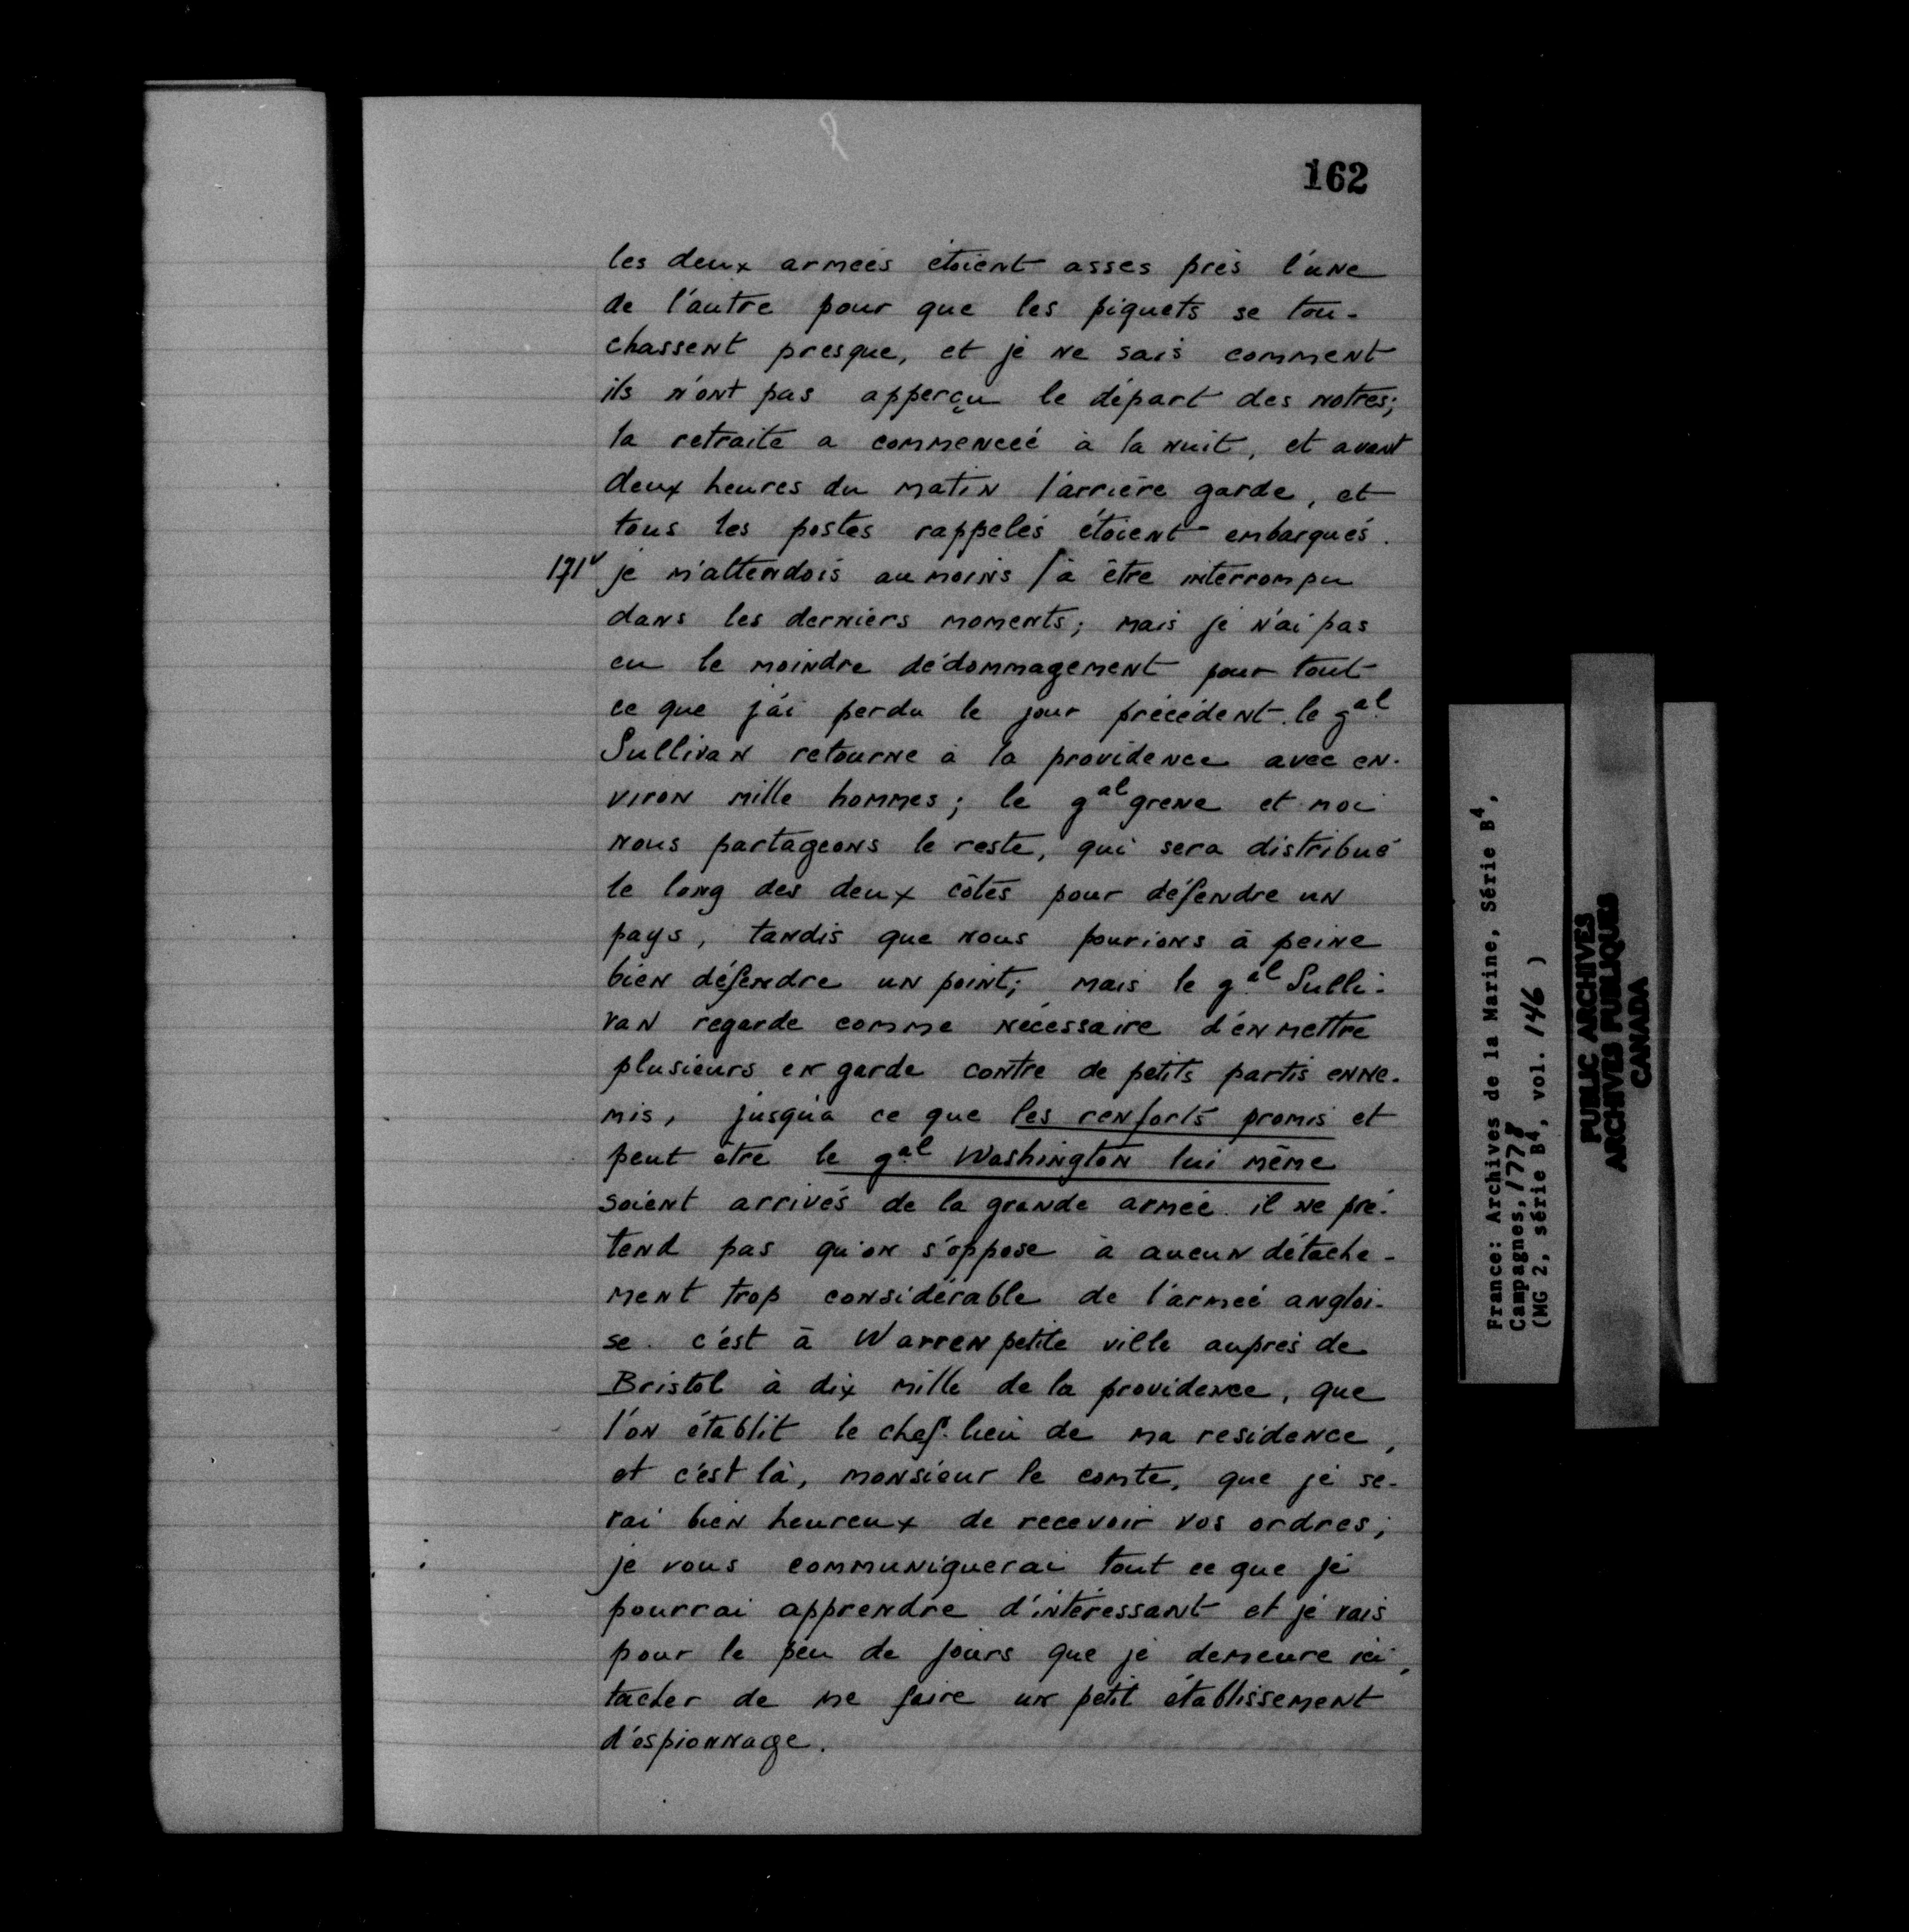 162
les deux armées étoient asses près l'une
de l'autre pour que les piquets se tou-
chassent presque, et je ne sais comment
ils n'ont pas apperçu le départ des notres;
la retraite a commencéé à la nuit, et avant
deux heures du matin l'arrière garde, et
tous les postes rappelés étoient embarqués.
171v je m'attendois au moins /à être interrompu
dans les derniers moments; mais je n'ai pas
eu le moindre dédommagement pour tout
ce que j'ai perdu le jour précédent. le gal
Sullivan retourne à la providence avec en-
viron mille hommes; le gal grene et moi
nous partageons le reste, qui sera distribué
le long des deux côtés pour défendre un
pays, tandis que nous pourions à peine
bien défendre un point; mais le gal Sulli-
van regarde comme nécessaire d'en mettre
plusieurs en garde contre de petits partis enne-
mis, jusqu'à ce que les renforts promis et
peut être le gal Washington lui même
soient arrivés de la grande armée. il ne pré-
tend pas qu'on s'oppose à aucun détache-
ment trop considérable de l'armée angloi-
se. c'est à Warren petite ville auprès de
Bristol à dix mille de la providence, que
l'on établit le chef-lieu de ma residence,
et c'est là, monsieur le comte, que je se-
rai bien heureux de recevoir vos ordres;
je vous communiquerai tout ce que je
pourrai apprendre d'intéressant et je vais
pour le peu de jours que je demeure ici,
tacher de me faire un petit établissement
d'espionnage.
France: Archives de la Marine, Série B4,
Campagnes, 1778
(MG 2, série B4, vol. 146 )
PUBLIC ARCHIVES
ARCHIVES PUBLIQUES
CANADA